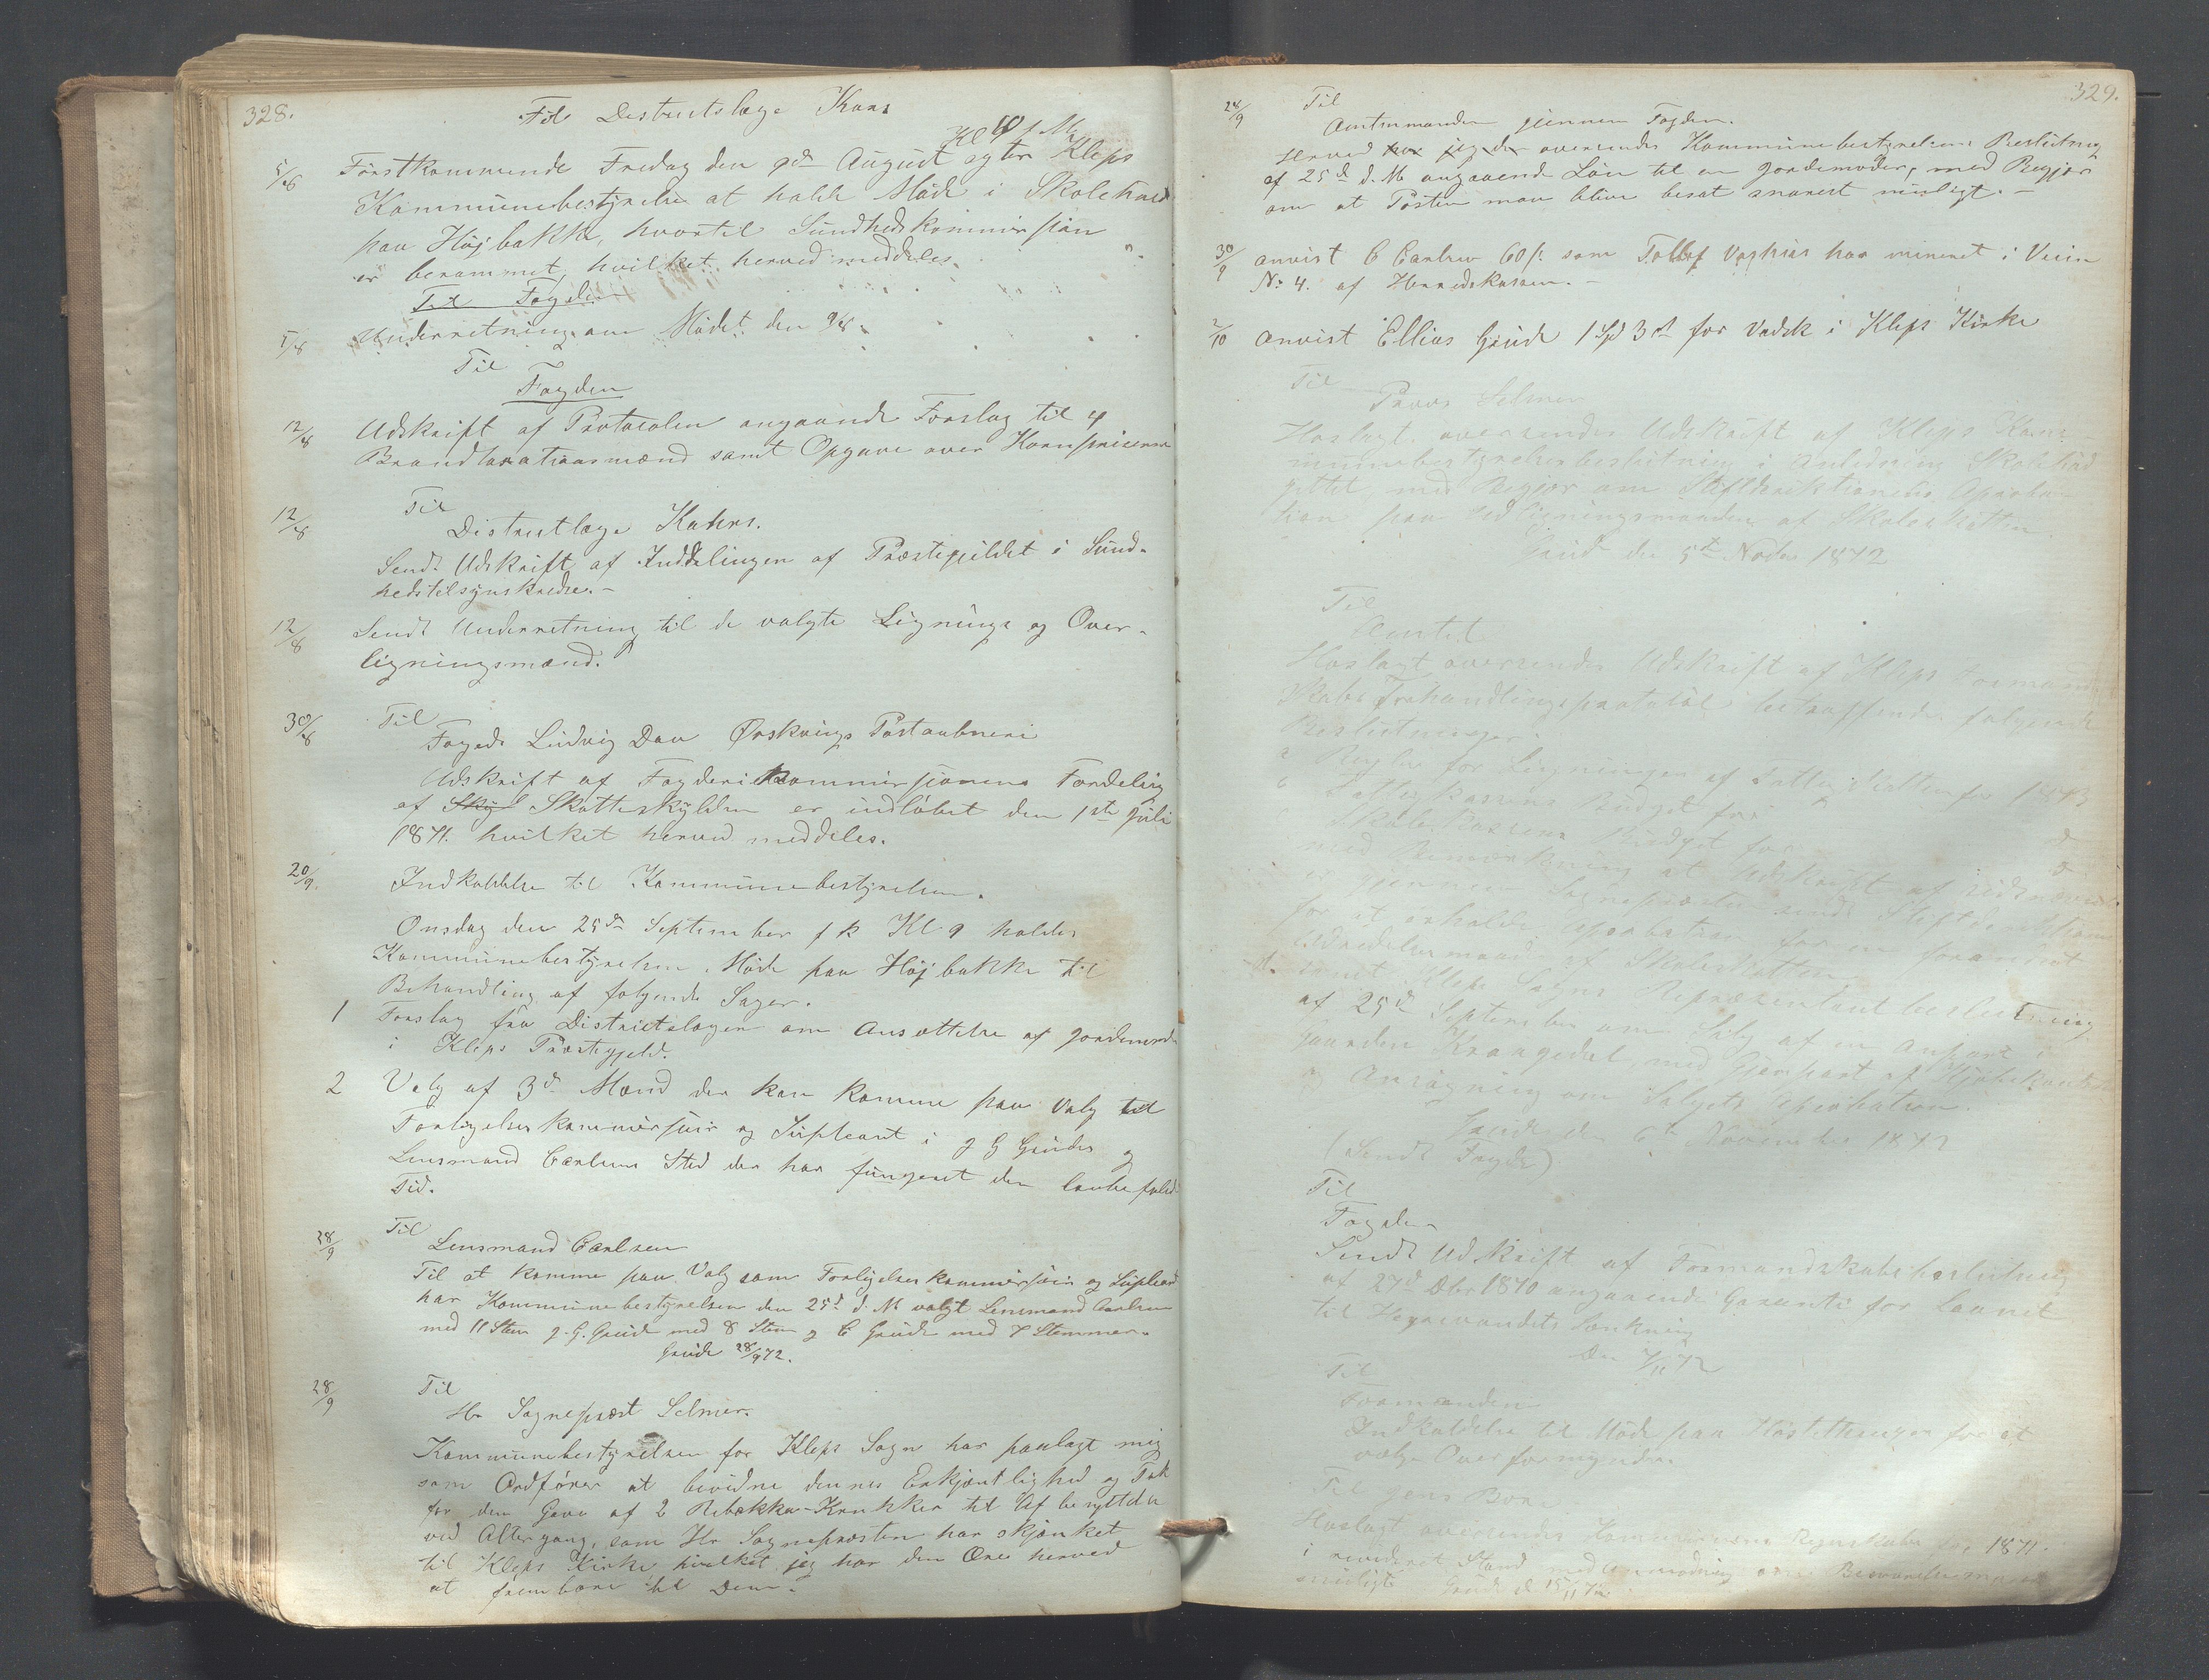 328.
Til Destrictslæge
Kl 10 f. M.
5/8 Förstkommende Fredag den 9de August agter Kleps
Kommunebestyrelse at holde Möde i Skolehuset
paa Höjbakke, hvortil Sundhedskommissjon
er berammet, hvilket herved meddeles.
Til Fogden
5/8 Underretning om Mödet den 9/8.
Til
Fogden
12/8 Udskrift af Protocolen angaaende Forslag til 4
Brandtaxationsmænd samt Opgave over Kornpriserne
Til
12/8 Districtlæge
Sendt Udskrift af Inddelingen af Præstegjeldet i Sund-
hedstilsynskredse.-
12/8 Sendt Underretning til de valgte Lignings og Over-
ligningsmænd.
30/8 Til
Foged Ludvig Daa Postaabneri
Udskrift af Fogderikommissjonens Fordeling
af Skyl Skatteskylden er indlöbet den 1ste Juli
1871. hvilket herved meddeles.
20/9. Indkaldelse til Kommunebestyrelsen.
Onsdag den 25de September f k Kl 9 holdes
Kommunebestyrelsen Möde paa Höjbakke til
Behandling af folgende Sager.
1 Forslag fra Districtslægen om Ansættelse af
i Kleps Præstegjeld.
2 Valg af 3de Mænd der kan komme paa Valg til
Forligelseskommissair og Supleant i J G Grudes og
Lensmand Carlsens Sted der har fungeret den
Tid.
28/9 Til
Lensmand Carlsen
Til at komme paa Valg som Forligelseskommissair og
har Kommunebestyrelsen den 25de d. M. valgt Lensmand Carlsen
med 11 Stem J. G. Grude med 8 Stem og C Grude med 7 Stemmer.
Grude 28/9 72.
28/9 Til
Hr Sognepræst Selmer.
Kommunebestyrelsen for Kleps Sogn har paalagt mig
som Ordförer at bevidne dennes Erkjentlighed og Tak
for den Gave af 2 Rebekka-Krukker til Af benyttelse
ved Altergang, som Hr Sognepræsten har skjænket
til Kleps Kirke, hvilket jeg har den Ære herved
at frembære til Dem.
329.
28/9 Til
Amtmanden gjennem Fogden.
Herved oversendes Kommunebestyrelsens Beslutning
af 25de d. M. angaaende Lön til en Jordemoder, med Begjær
om at Posten maa blive besat snarest muligt.-
30/9 anvist C Carlsen 60 s. som Tollef har mineret i Veien
No 4. af Herredskassen.-
2/10 anvist Ellias Grude 1 Spd 3 for Vadsk i Kleps Kirke
Til
Provs Selmer
Hoslagt oversendes Udskrift af Kleps Kom-
munebestyrelsesbeslutning i Anledning
med Begjær om Stiftdirektionens
paa af Skoleskatten.
Grude den 5te Novbr 1872
Til
Amtet
Hoslagt oversendes Udskrift af Kleps Formand-
skabs Forhandlingsprotokol betræffende folgende
Beslutninger.
Regler for Ligningen af for 1873
Skolekassens Budget for
med Bemærkning at Udskrift af
er gjennem Sognepræsten sendt Stiftdirektionen
for at erholde for en forandret
af Skoleskatten
samt Kleps Sogns Repræsentantbeslutning
af 25de September om Salg af en Anpart i
Gaarden med Gjenpart af
og Ansögning om Salgets
Grude den 6te November 1872
(Sendt Fogden)
Til
Fogden
Sendt Udskrift af Formandskabsbeslutning
af 27de Dbr 1870 angaaende Garanti for Laanet
til Sænkning
Den 7/11 72
Til
Formænden
Indkaldelse til Möde paa Hösttthinget for at
vælge Overformynder.
Til Jens
Hoslagt oversendes Kommunens Regnskaber for 1871.
i revideret Stand med Anmodning om
muligt Grude d 15/11 72